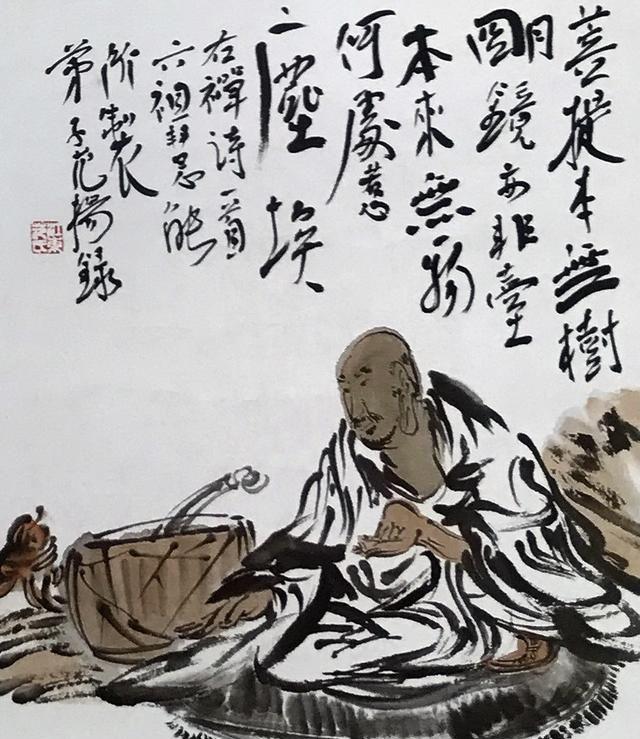 菩提本無樹
朙鏡亦非臺
本來無一物
何處惹
塵埃
右禪詩一首
六祖慧能
所製
弟子范揚錄